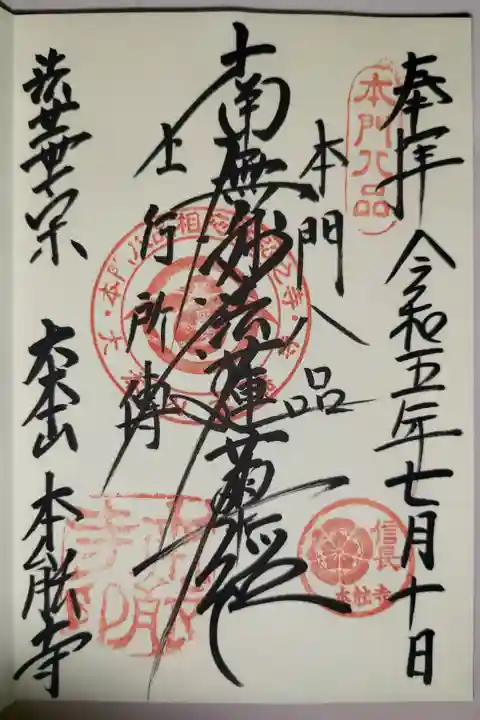 奉拝 令和五年七月十日
本門八品
本門八品
南無妙法蓮華経
上行所傳
法華宗 大本山 本能寺
信長
本能寺
本能寺印